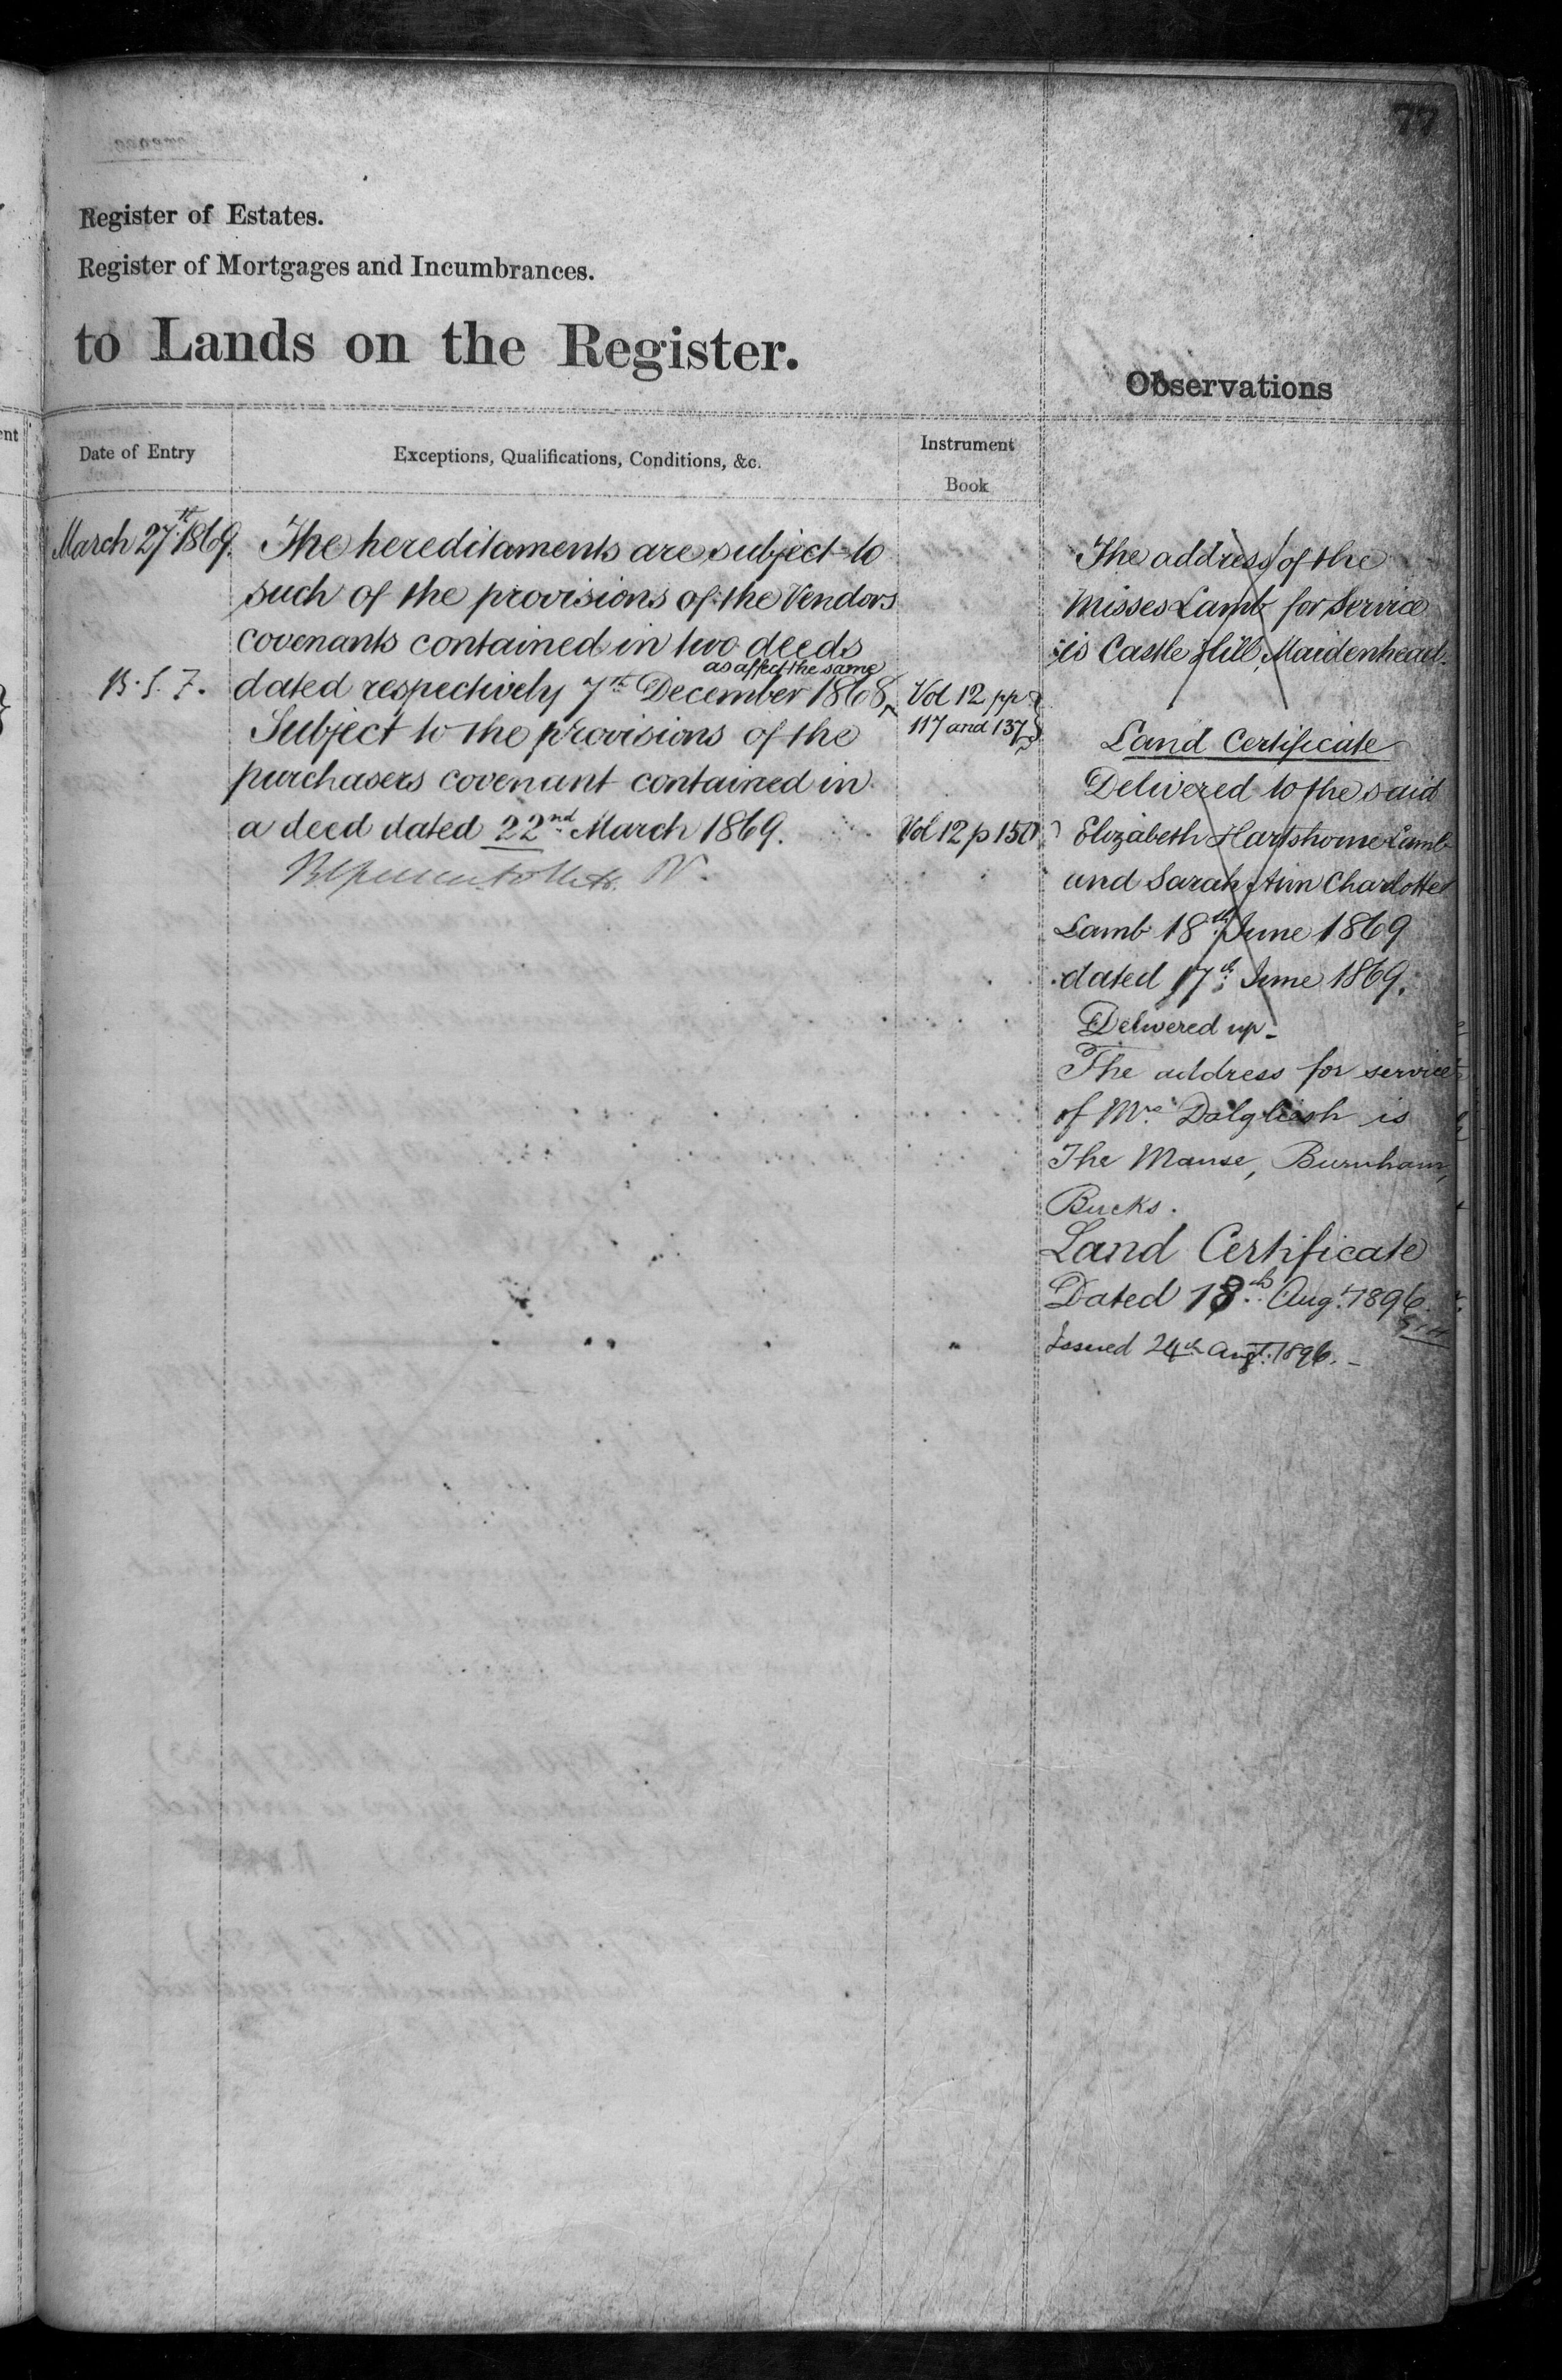 77
Register of Estates.
Register of Mortgages and Incumbrances.
to Lands on the Register.
Observations
Date of Entry
Exceptions, Qualifications, Conditions, &c.
Instrument
Book
March 27th 1869.
The hereditaments are subject to
such of the provisions of the Vendors
covenants contained in two deeds
as affect the same
dated respectively 7th December 1868
B. S. F.
Vol 12 pp
117 and 137
Subject to the provisions of the
purchasers covenant contained in
a deed dated 22nd March 1869.
Vol 12 p 150
The address of the
Misses Lamb for Service
is Castle Hill, Maidenhead.
Land Certificate
Delivered to the said
Elizabeth Hartshorne Lamb
and Sarah Ann Charlotte
Lamb 18th June 1869
dated 17th June 1869.
Delivered up.
The address for service
of Mrs. Dalgliesh is
The Manse, Burnham,
Bucks.
Land Certificate
Dated 18th Augt. 1896.
Issued 24th Augt. 1896.